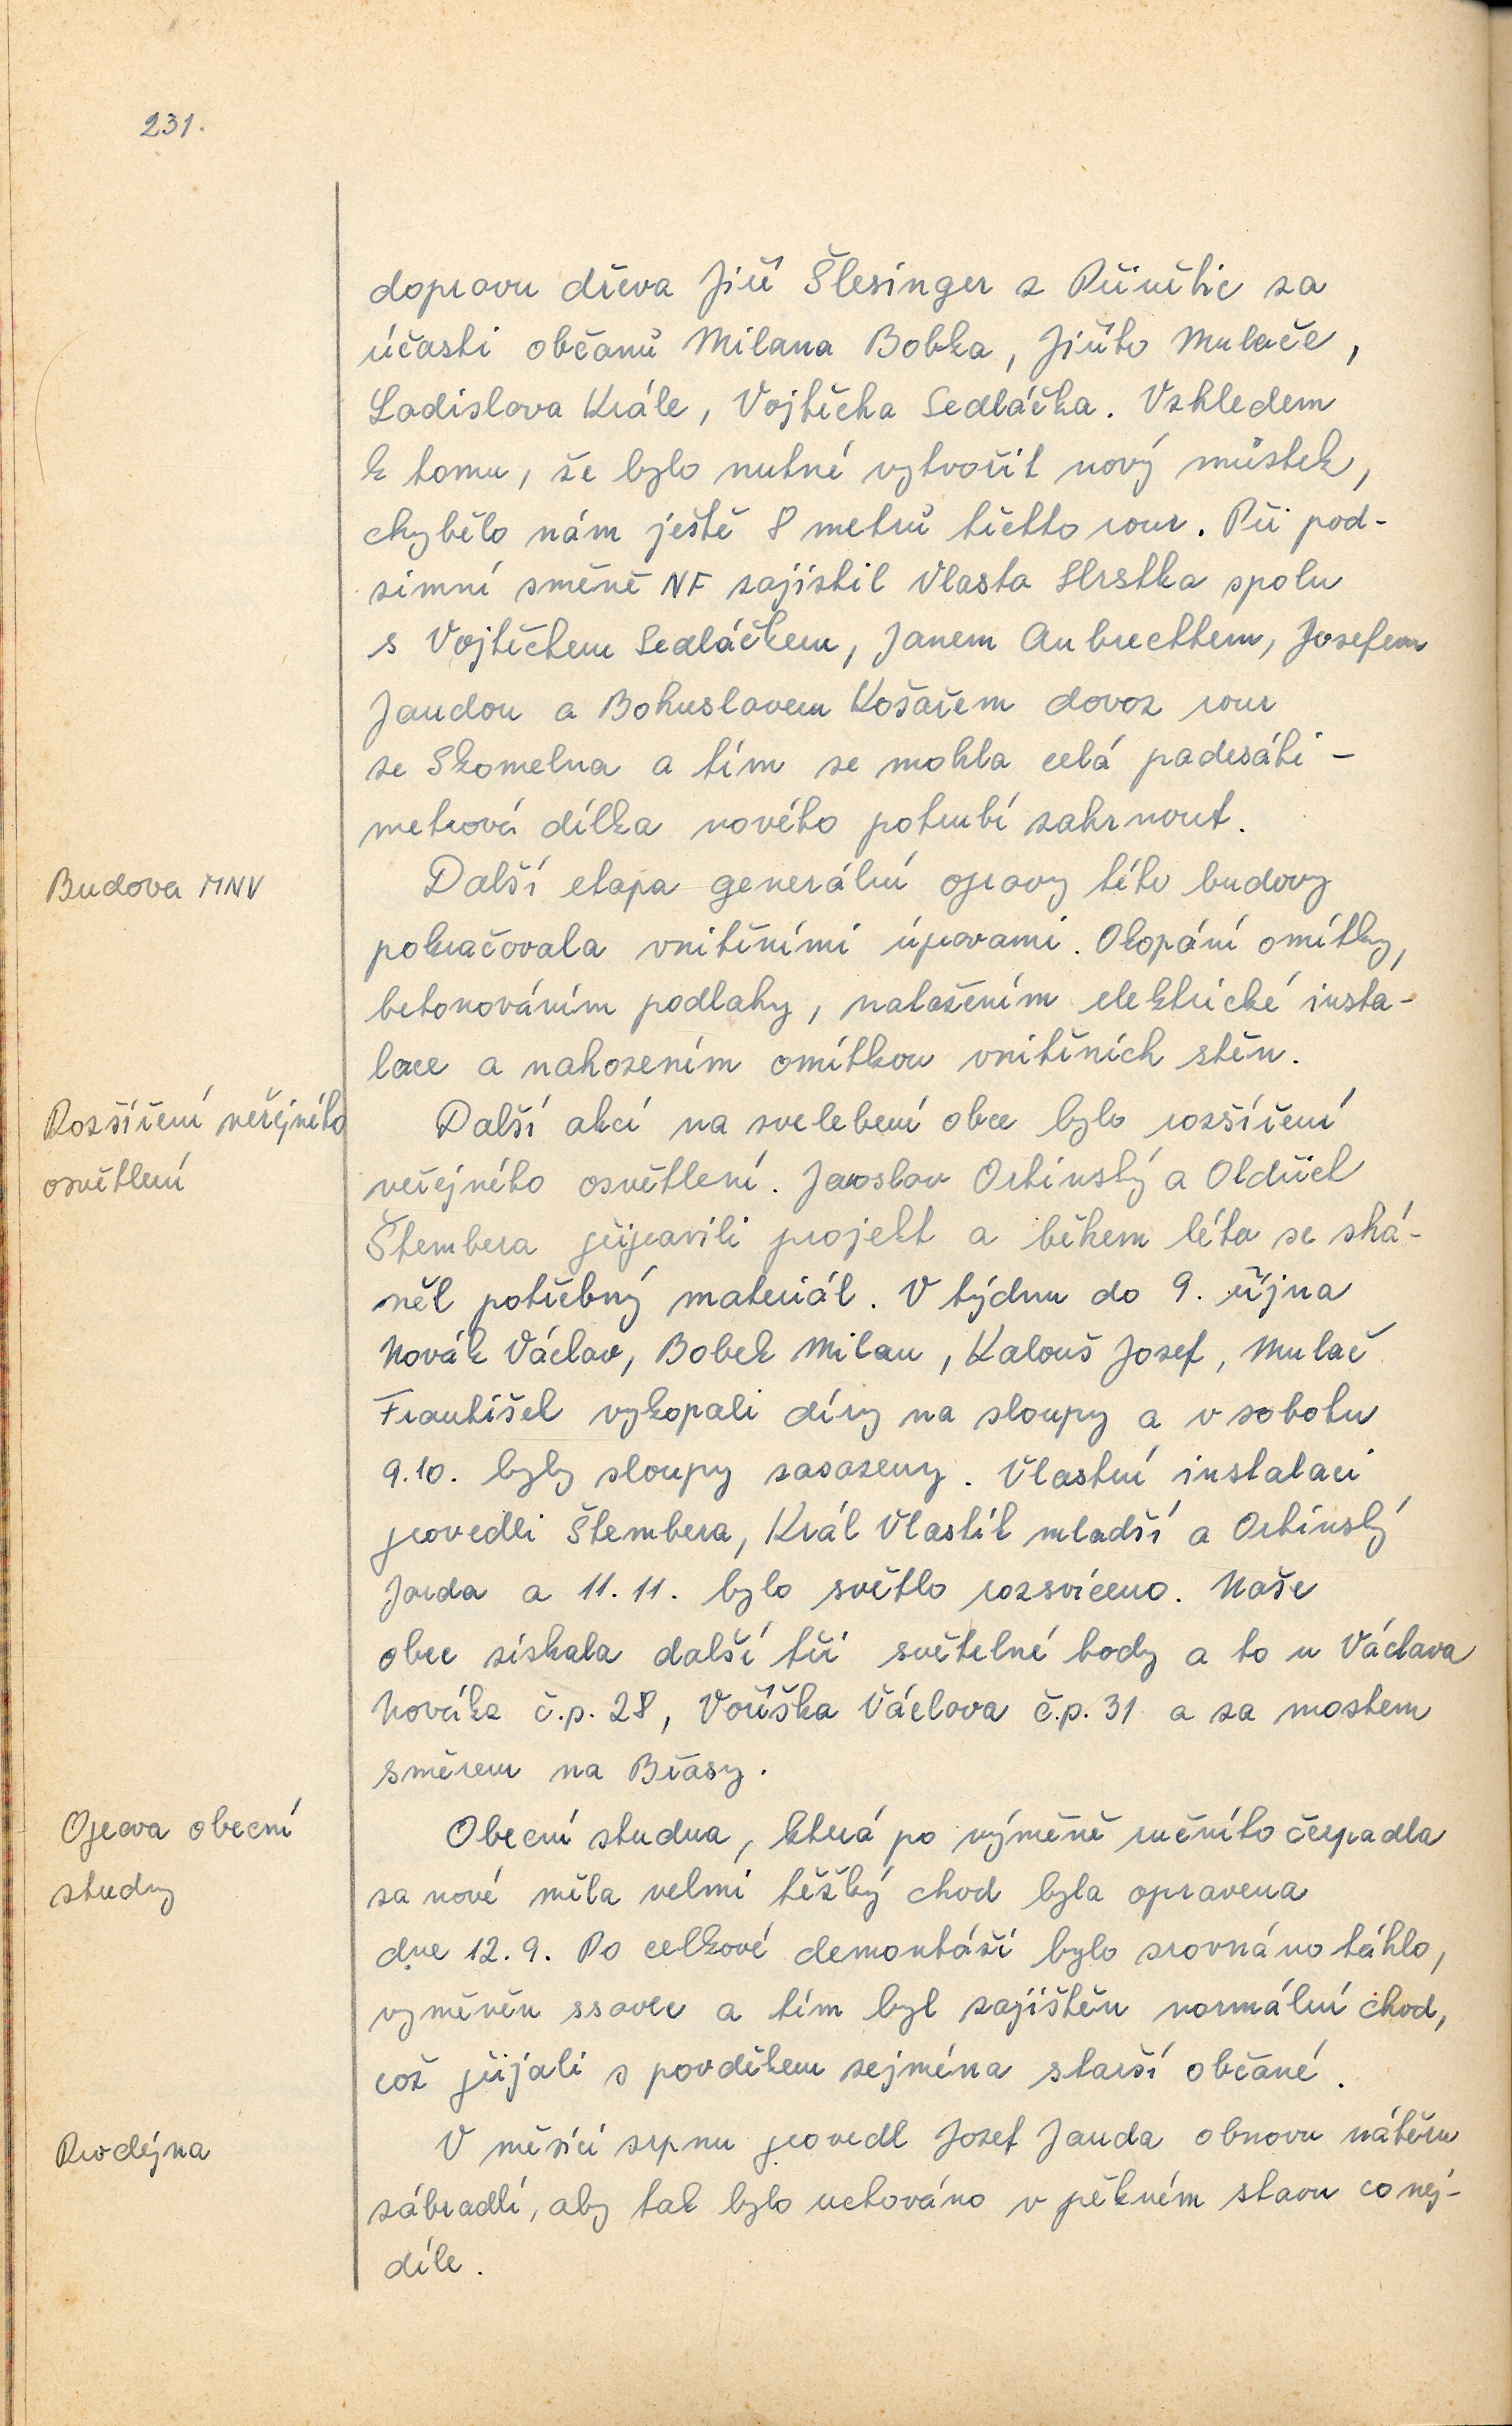 231.
dopravu dřeva Jiří Šlesinger z Přívětic za
účasti občanů Milana Bobka, Jiřího Mulače,
Ladislava Krále, Vojtěcha Sedláčka. Vzhledem
k tomu, že bylo nutné vytvořit nový můstek,
chybělo nám ještě 8 metrů těchto rour. Při pod-
zimní směně NF zajistil Vlasta Hrstka spolu
s Vojtěchem Sedláčkem, Janem Aubrechtem, Josefem
Jandou a Bohuslavem Košařem dovoz rour
ze Skomelna a tím se mohla celá padesáti-
metrová délka nového potrubí zahrnout.
Budova MNV
Další etapa generální opravy této budovy
pokračovala vnitřními úpravami. Okopání omítky,
betonováním podlahy, natažením elektrické insta-
lace a nahozením omítkou vnitřních stěn.
Rozšíření veřejného
osvětlení
Další akcí na zvelebení obce bylo rozšíření
veřejného osvětlení. Jaroslav Ortinský a Oldřich
Štembera připravili projekt a během léta se shá-
něl potřebný materiál. V týdnu do 9. října
Novák Václav, Bobek Milan, Kalouš Josef, Mulač
František vykopali díry na sloupy a v sobotu
9.10. byly sloupy zasazeny. Vlastní instalaci
provedli Štembera, Král Vlastík mladší a Ortinský
Jarda a 11.11. bylo světlo rozsvíceno. Naše
obec získala další tři světelné body a to u Václava
Nováka č.p. 28, Voříška Václava č.p. 31 a za mostem
směrem na Břasy.
Oprava obecní
studny
Obecní studna, která po výměně ručního čerpadla
za nové měla velmi těžký chod byla opravena
dne 12.9. Po celkové demontáži bylo srovnáno táhlo,
vyměněn ssavec a tím byl zajištěn normální chod,
což přijali s povděkem zejména starší občané.
Prodejna
V měsíci srpnu provedl Josef Janda obnovu nátěru
zábradlí, aby tak bylo uchováno v pěkném stavu co nej-
déle.